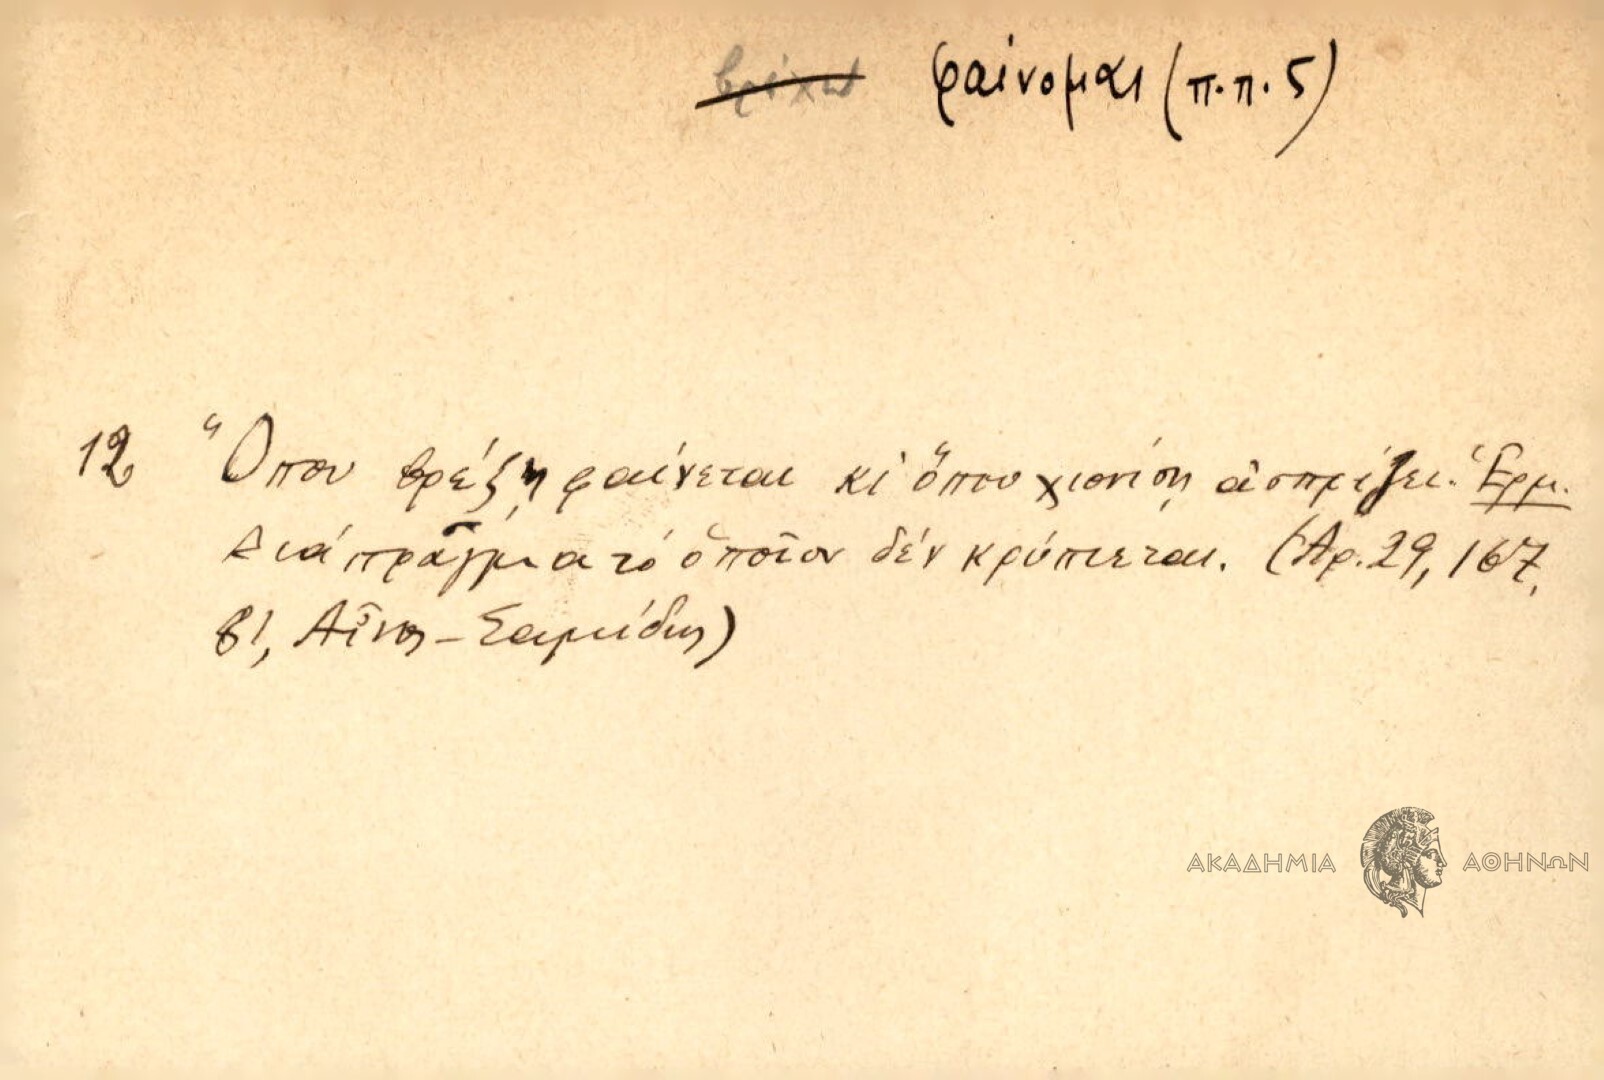 βρέχω φαίνομαι (π.π. 5)
12 Ὅπου βρέξῃ φαίνεται κι ὅπου χιονίσῃ ἀσπρίζει. Ἑρμ.
Διά πρᾶγμα τό ὁποῖον δέν κρύπτεται. (Ἀρ. 29, 167,
81, Αἶνος – Σαμίδης)
ΑΚΑΔΗΜΙΑ ΑΘΗΝΩΝ